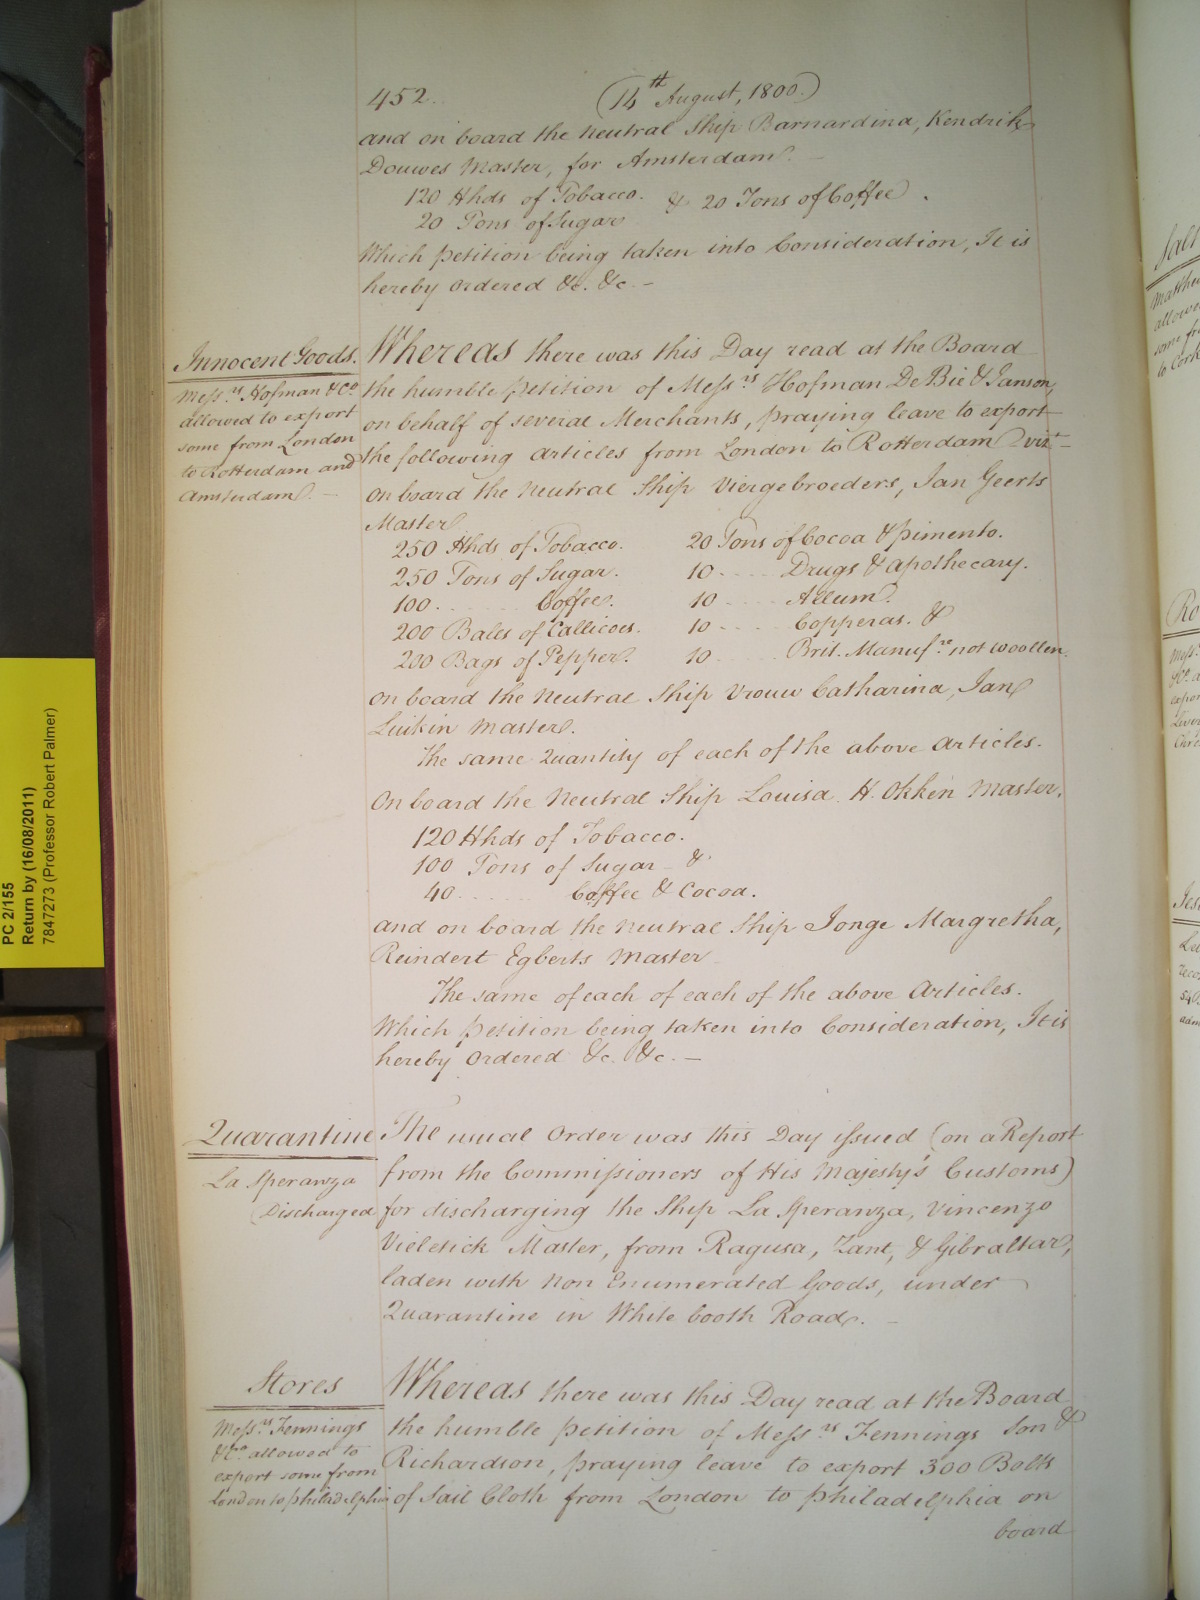 452
(14th August, 1800.)
and on board the Neutral Ship Barnardina, Kendrik
Douwes Master, for Amsterdam. –
120 Hhds of Tobacco. & 20 Tons of Coffee.
20 Tons of Sugar
Which petition being taken into Consideration, It is
hereby ordered &c. &c –
Innocent Goods.
Messrs Hofman & Co
allowed to export
some from London
to Rotterdam and
Amsterdam. –
Whereas there was this Day read at the Board
the humble petition of Messrs Hofman De Bie & Janson,
on behalf of several Merchants, praying leave to export
the following Articles from London to Rotterdam vizt
on board the Neutral Ship Viergebroeders, Jan Geerts
Master
250 Hhds of Tobacco. 20 Tons of Cocoa & pimento.
250 Tons of Sugar. 10 .... Drugs & apothecary.
100 ....... Coffee. 10 .... Allum.
200 Bales of Callicoes. 10 .... Copperas. &
200 Bags of Pepper. 10 .... Brit. Manufre not woollen
on board the Neutral Ship Vrouw Catharina, Jan
Luikin Master.
The same Quantity of each of the above Articles.
On board the Neutral Ship Louisa H. Okken Master.
120 Hhds of Tobacco.
100 Tons of Sugar &
40 ....... Coffee & Cocoa.
and on board the Neutral Ship Jonge Margretha,
Reindert Egberts Master
The same of each of each of the above Articles.
Which petition being taken into Consideration, It is
hereby ordered &c. &c. –
Quarantine
La Speranza
Discharged
The usual Order was this Day issued (on a Report
from the Commissioners of His Majesty's Customs)
for discharging the Ship La Speranza, Vincenzo
Vieletick Master, from Ragusa, Zant, & Gibraltar,
laden with Non Enumerated Goods, under
Quarantine in White booth Road. –
Stores
Messrs Jennings
& Co allowed to
export some from
London to philadelphia
Whereas there was this Day read at the Board
the humble petition of Messrs Jennings Son &
Richardson, praying leave to export 300 Bolts
of Sail Cloth from London to philadelphia on
board
PC 2/155
Return by (16/08/2011)
7847273 (Professor Robert Palmer)